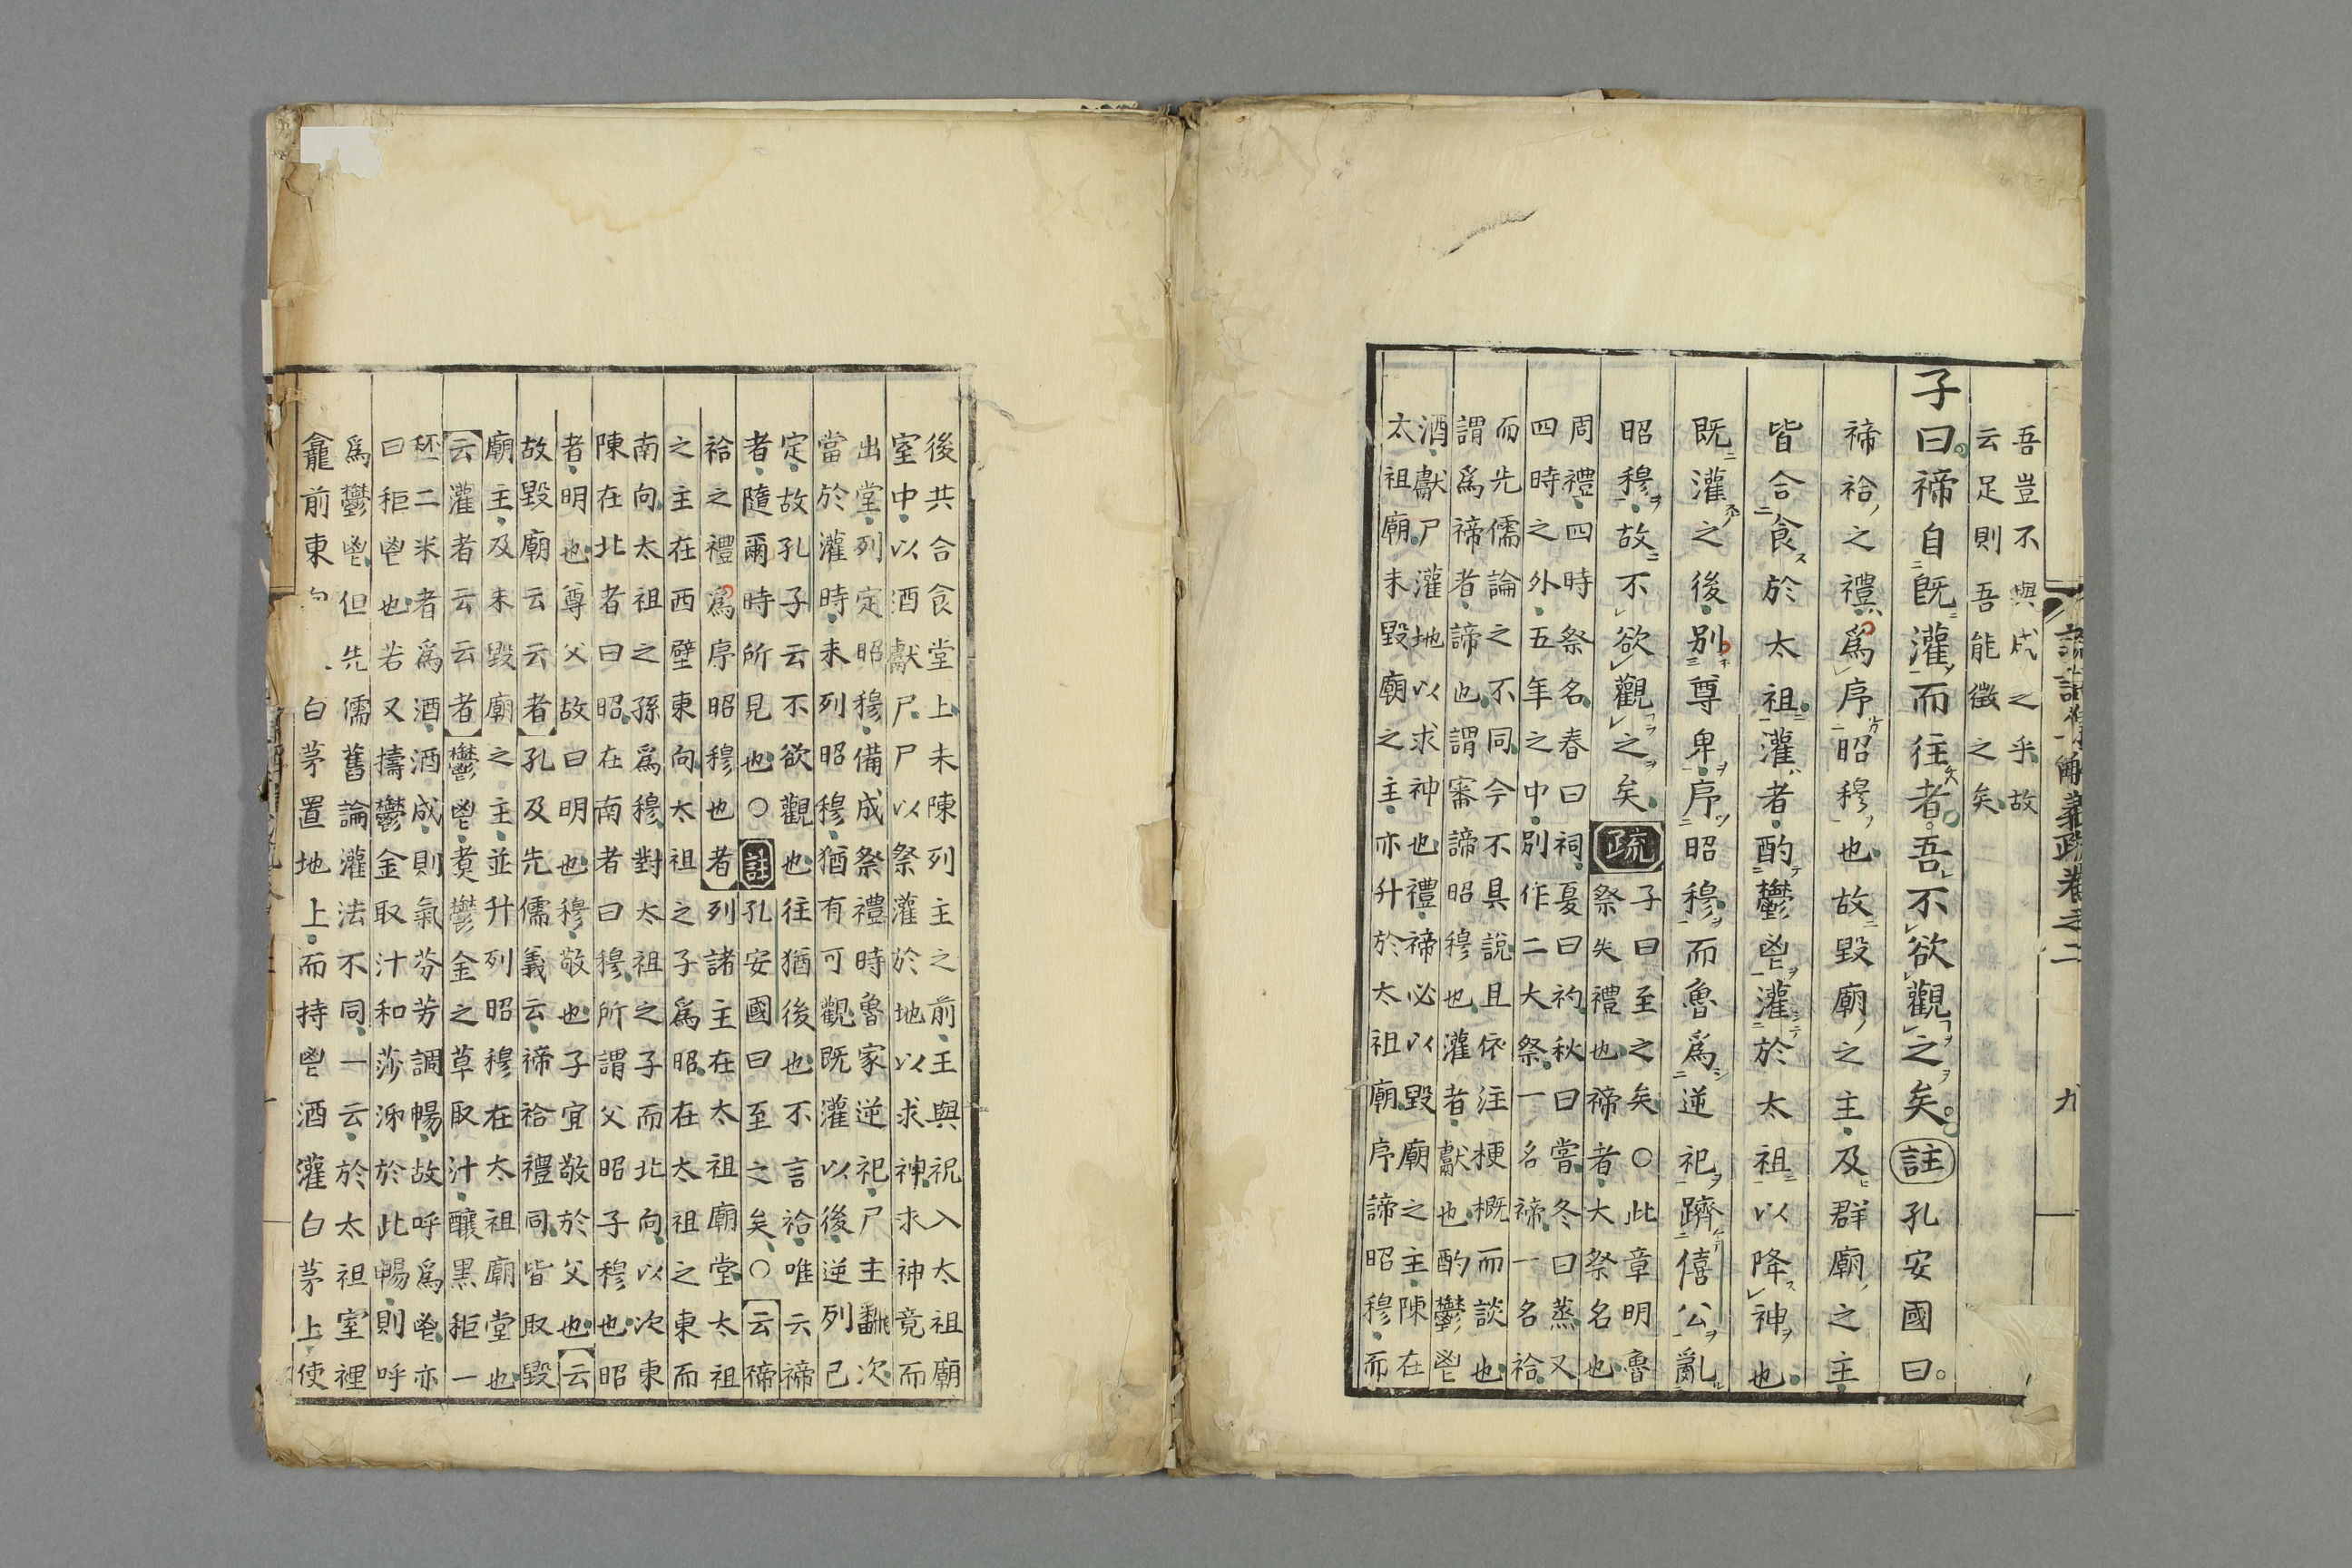 論語集解義疏卷之二　九
吾豈不與成之乎故
云足則吾能徵之矣
子曰。禘自既灌而往者。吾不欲觀之矣。註孔安國曰。
禘祫之禮爲序昭穆也故毀廟之主及群廟之主
皆合食於太祖灌者酌鬱鬯灌於太祖以降神也
既灌之後別尊卑序昭穆而魯爲逆祀躋僖公亂
昭穆故不欲觀之矣疏
子曰至之矣○此章明魯
祭失禮也禘者大祭名也
周禮四時祭名春曰祠夏曰礿秋曰嘗冬曰蒸又
四時之外五年之中別作二大祭一名禘一名祫
而先儒論之不同今不具說且依注梗概而談也
謂爲禘者諦也謂審諦昭穆也灌者獻也酌鬱鬯
酒獻尸灌地以求神也禮禘必以毀廟之主陳在
太祖廟未毀廟之主亦升於太祖廟序諦昭穆而
後共合食堂上未陳列主之前王與祝入太祖廟
室中以酒獻尸尸以祭灌於地以求神求神竟而
出堂列定昭穆備成祭禮時魯家逆祀尸主翻次
當於灌時未列昭穆猶有可觀既灌以後逆列已
定故孔子云不欲觀也往猶後也不言祫唯云禘
者隨爾時所見也○註孔安國曰至之矣○云禘
祫之禮爲序昭穆也者列諸主在太祖廟堂太祖
之主在西壁東向太祖之子爲昭在太祖之東而
南向太祖之孫爲穆對太祖之子而北向以次東
陳在北者曰昭在南者曰穆所謂父昭子穆也昭
者明也尊父故曰明也穆敬也子宜敬於父也云
故毀廟云云者孔及先儒義云禘祫禮同皆取毀
廟主及未毀廟之主並升列昭穆在太祖廟堂也
云灌者云云者鬱鬯煑鬱金之草取汁釀黑秬一
秠二米者爲酒酒成則氣芬芳調暢故呼爲鬯亦
曰秬鬯也若又擣鬱金取汁和莎泲於此暢則呼
爲鬱鬯但先儒舊論灌法不同一云於太祖室裡
龕前東　白茅置地上而持鬯酒灌白茅上使